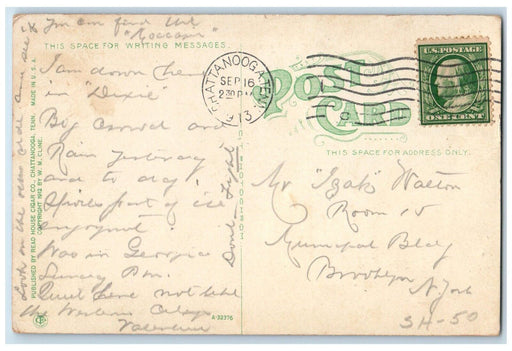 & you can find the
"Moccasin"
THIS SPACE FOR WRITING MESSAGES.
I am down here
in Dixie
Big crowd and
Rain yesterday
and to day
Spoiled part of the
enjoyment
Was in Georgia
Sunday P.m.
Quiet here not like
the Western
Valentine
Don't Fight
Look on the other side and see
PUBLISHED BY READ HOUSE CIGAR CO., CHATTANOOGA, TENN. MADE IN U.S.A.
COPYRIGHT 1912 BY W. M. CLINE.
A-32376
POST
CARD
THIS SPACE FOR ADDRESS ONLY.
CHATTANOOGA, TENN.
SEP 16
2 30 P M
1913
U.S. POSTAGE
ONE CENT
Mr "Izak" Walton
Room 15
Municipal Bldg
Brooklyn
N. York
SH-50